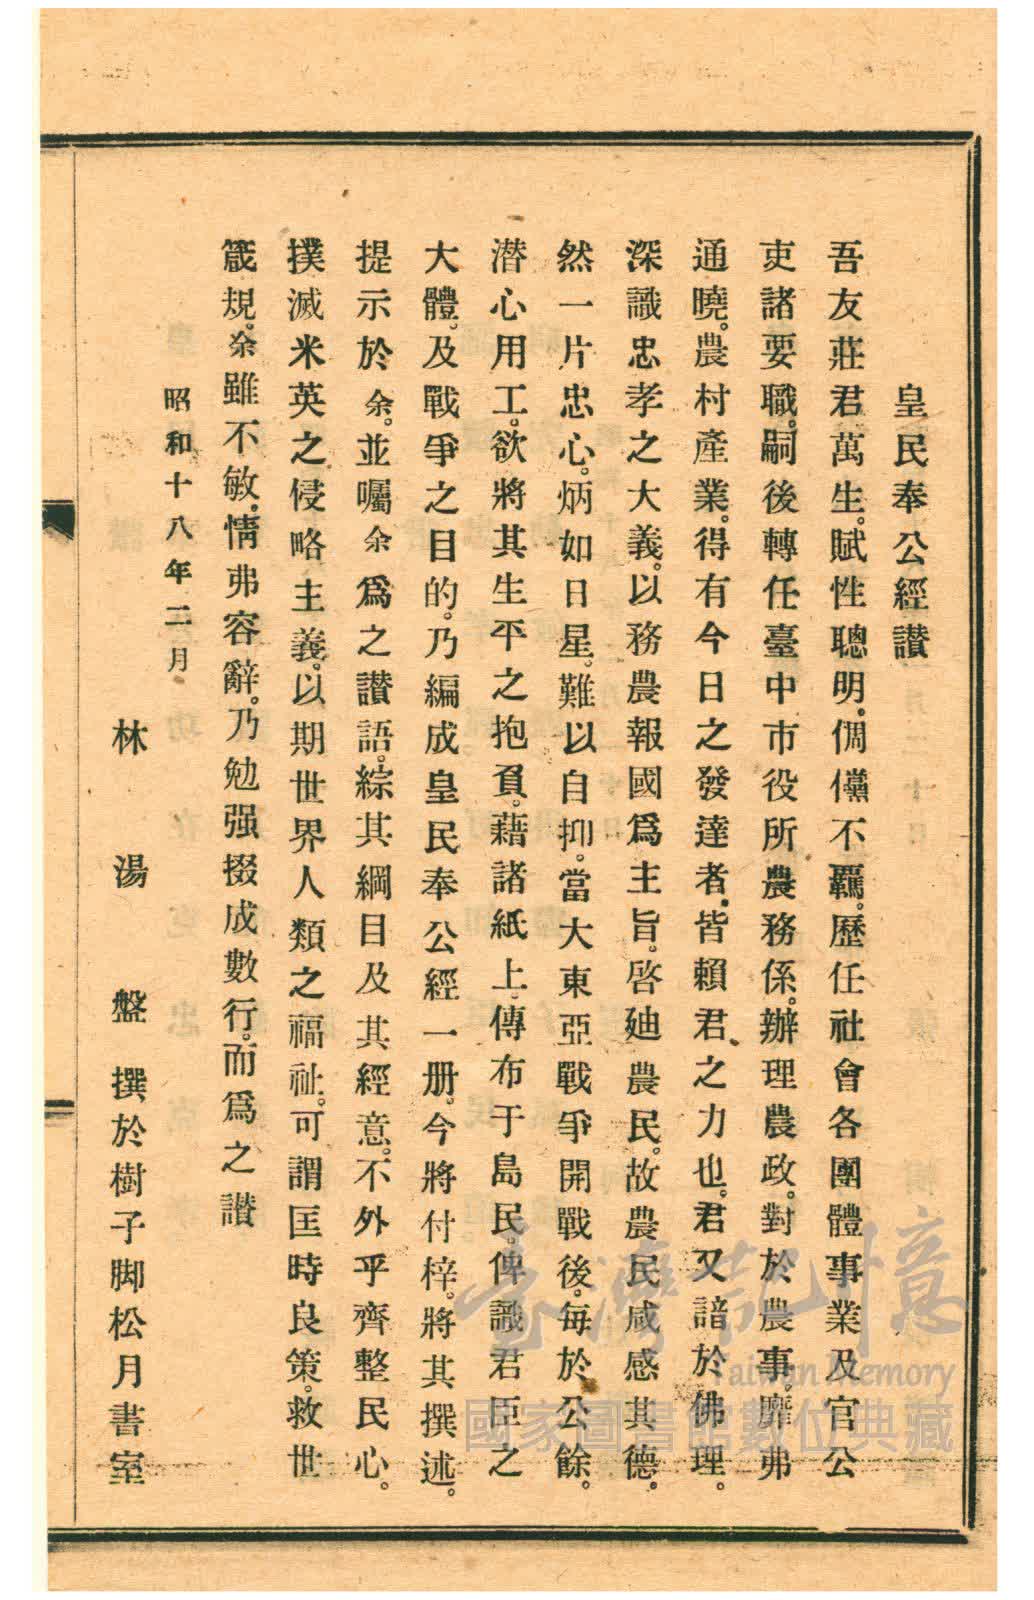 皇民奉公經讃
吾友莊君萬生。賦性聰明。倜儻不羈。歷任社會各團體事業及官公
吏諸要職。嗣後轉任臺中市役所農務係。辦理農政。對於農事。靡弗
通曉。農村產業。得有今日之發達者。皆賴君之力也。君又諳於佛理。
深識忠孝之大義。以務農報國爲主旨。啓廸農民。故農民咸感其德。
然一片忠心。炳如日星。難以自抑。當大東亞戰爭開戰後。每於公餘。
潜心用工。欲將其生平之抱負。藉諸紙上傳布于島民。俾識君臣之
大體。及戰爭之目的。乃編成皇民奉公經一册。今將付梓。將其撰述。
提示於余。並囑余爲之讃語。綜其綱目及其經意。不外乎齊整民心。
撲滅米英之侵略主義。以期世界人類之福祉。可謂匡時良策。救世
箴規。余雖不敏。情弗容辭。乃勉强掇成數行。而爲之讃
昭和十八年二月
林湯盤撰於樹子脚松月書室
臺灣記憶
Taiwan Memory
國家圖書館數位典藏